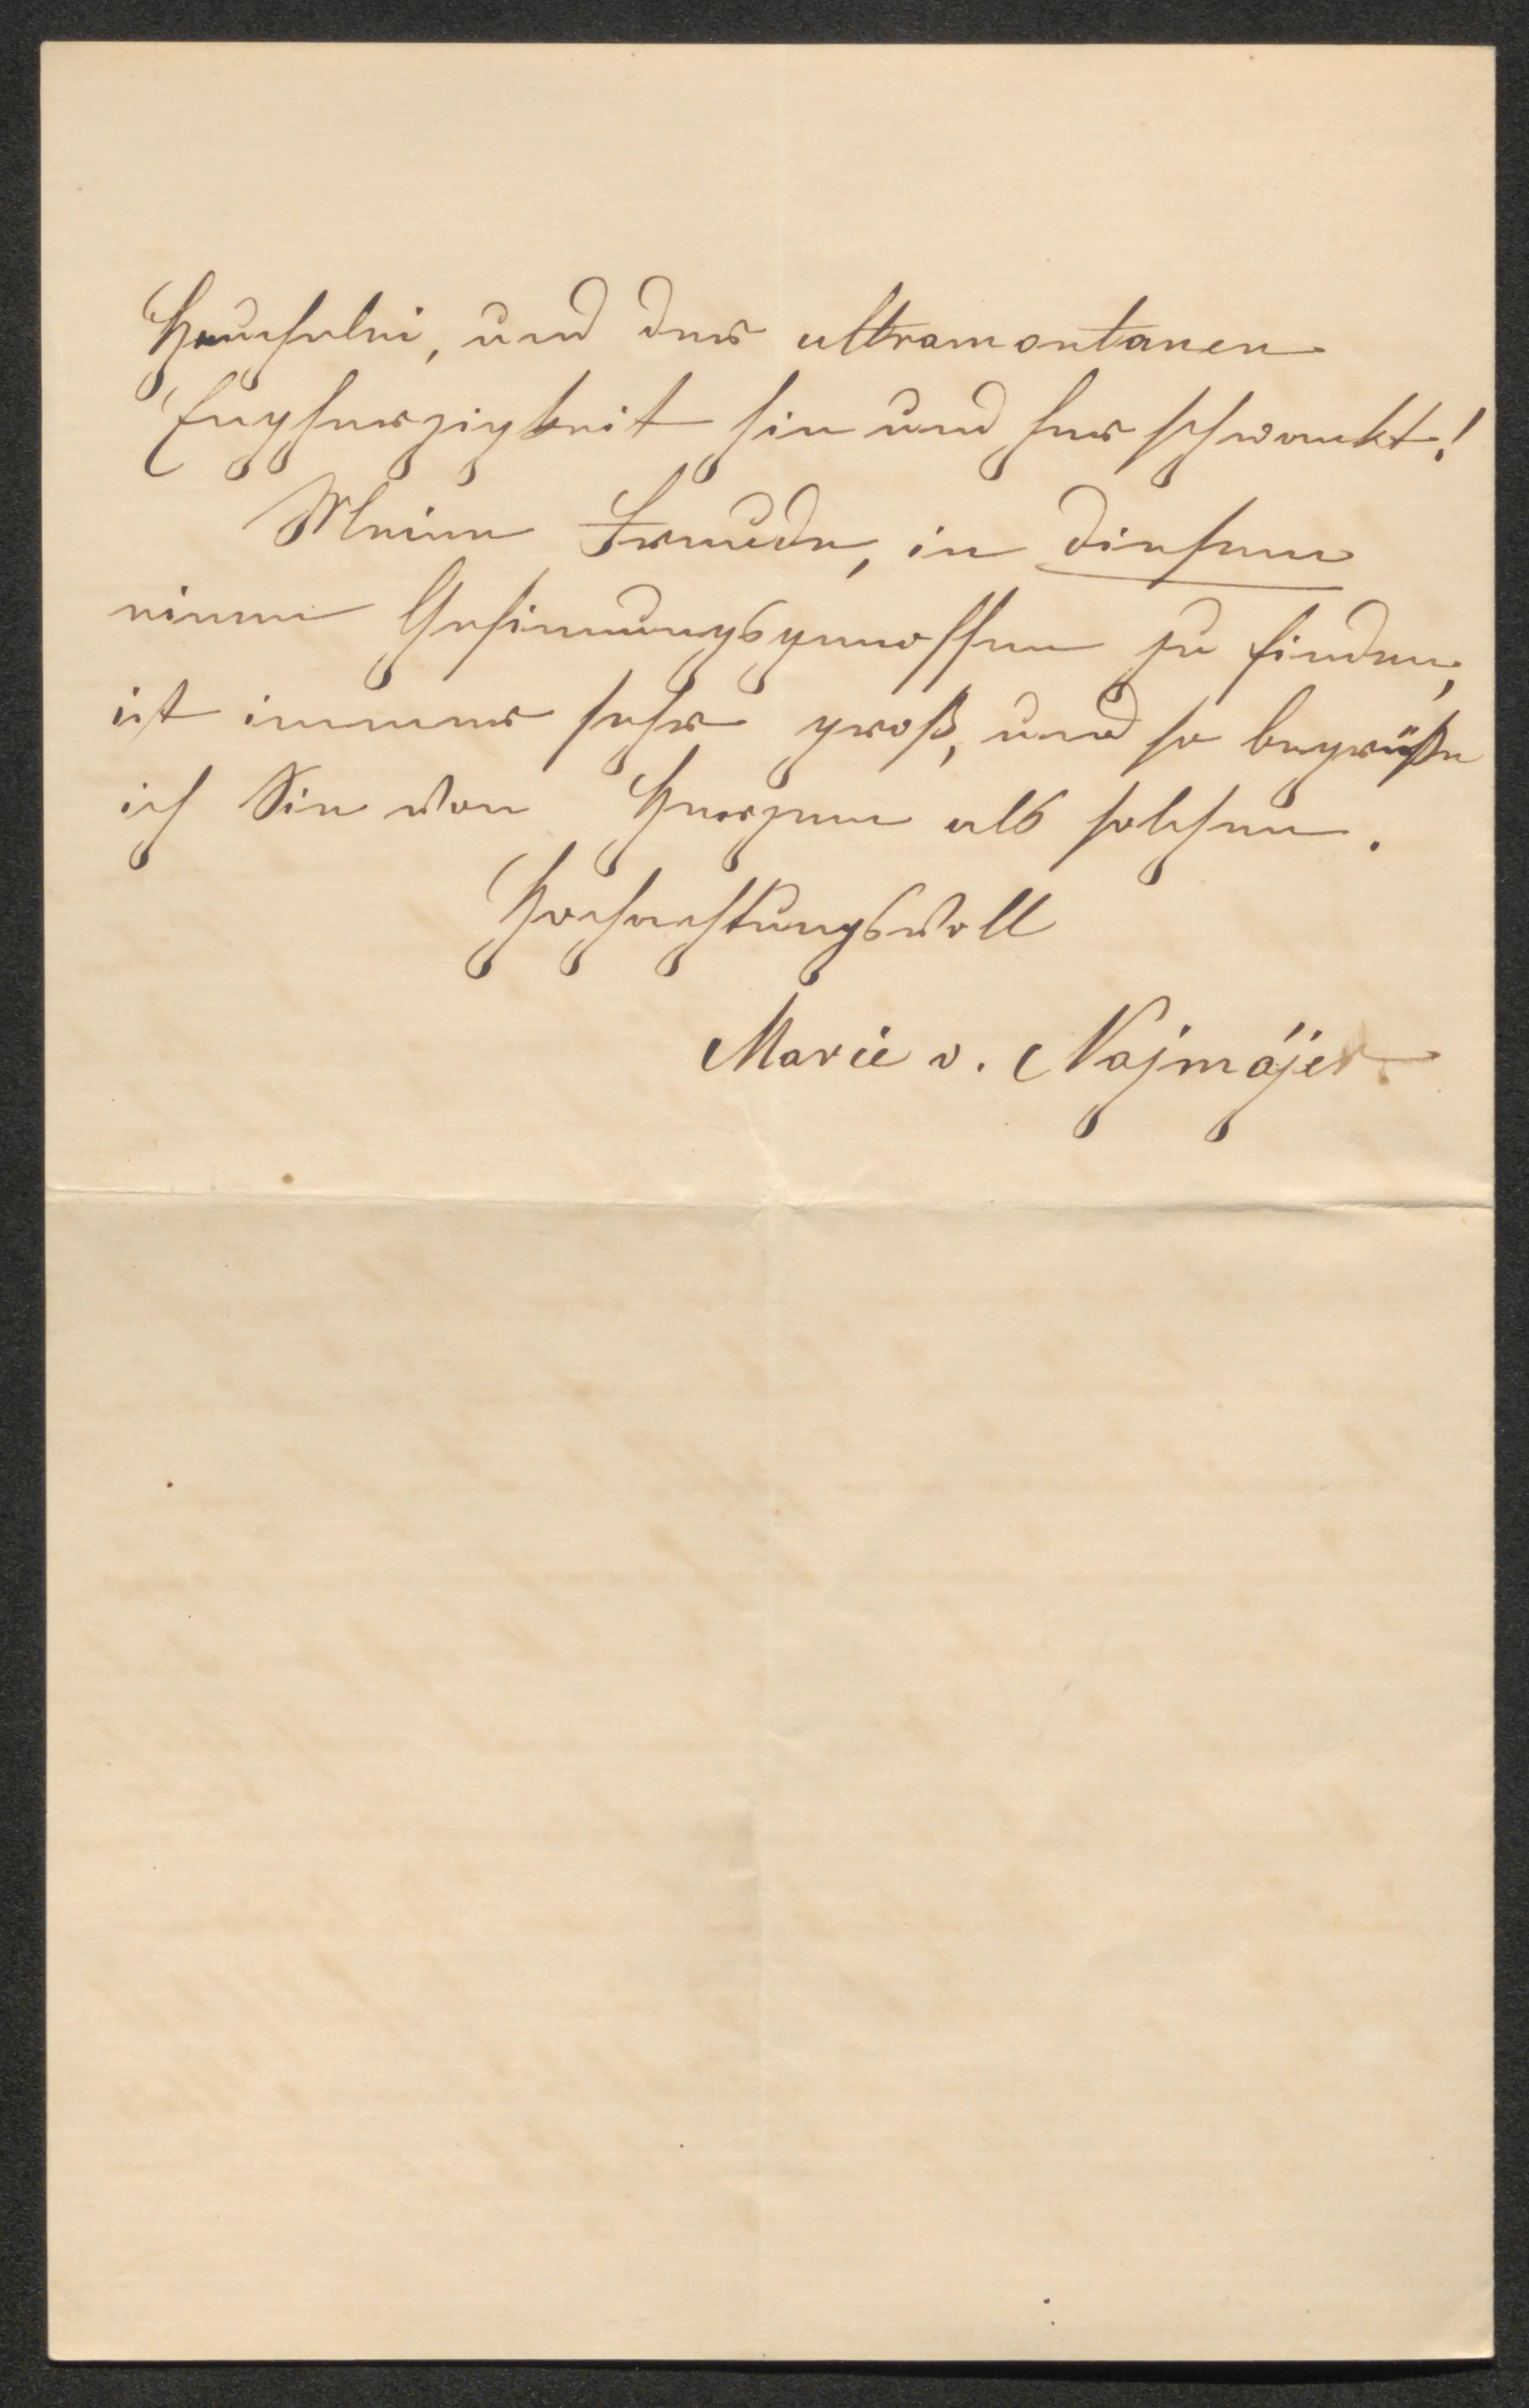 Heuchelei, und der ultramontanen
Engherzigkeit hin und her schwankt!
Meine Freude, in diesem
einen Gesinnungsgenossen zu finden,
ist immer sehr groß, und so begrüße
ich Sie von Herzen als solchen.
Hochachtungsvoll
Marie v. Najmájer.